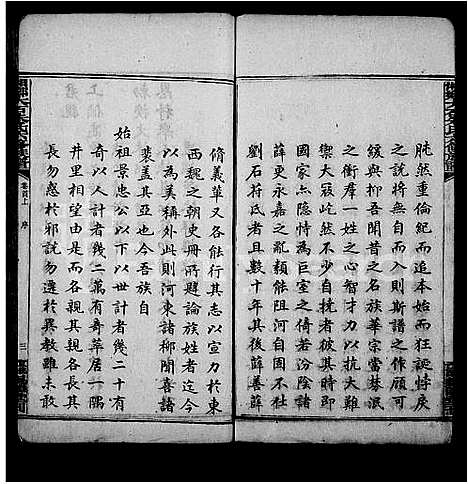 肫然重倫紀而追本始而狂誕悖戾
之說將無自而入則斯譜之作顧可
緩與抑吾聞昔之名族華宗當棼泯
之衝羣一姓之心智才力以抗大難
禦大寇屹然不少自挫者彼其時即
國家亦隱恃為巨室之倚若汾陰諸
薛更永嘉之亂類能阻河自固不臣
劉石苻氏者且數十年其後薛善薛
脩義輩又各能行其志以宣力於東
西魏之朝史冊所艷論族姓者迄今
以為美稱外此則河東諸柳聞喜諸
裴蓋其亞也今吾族自
始祖景忠公以下以世計者幾二十有
奇以人計者幾二萬有奇華居一隅
井里相望由是而各親其親各長其
長勿惑於邪說勿遷於異教雖未敢
卷首上
序
三